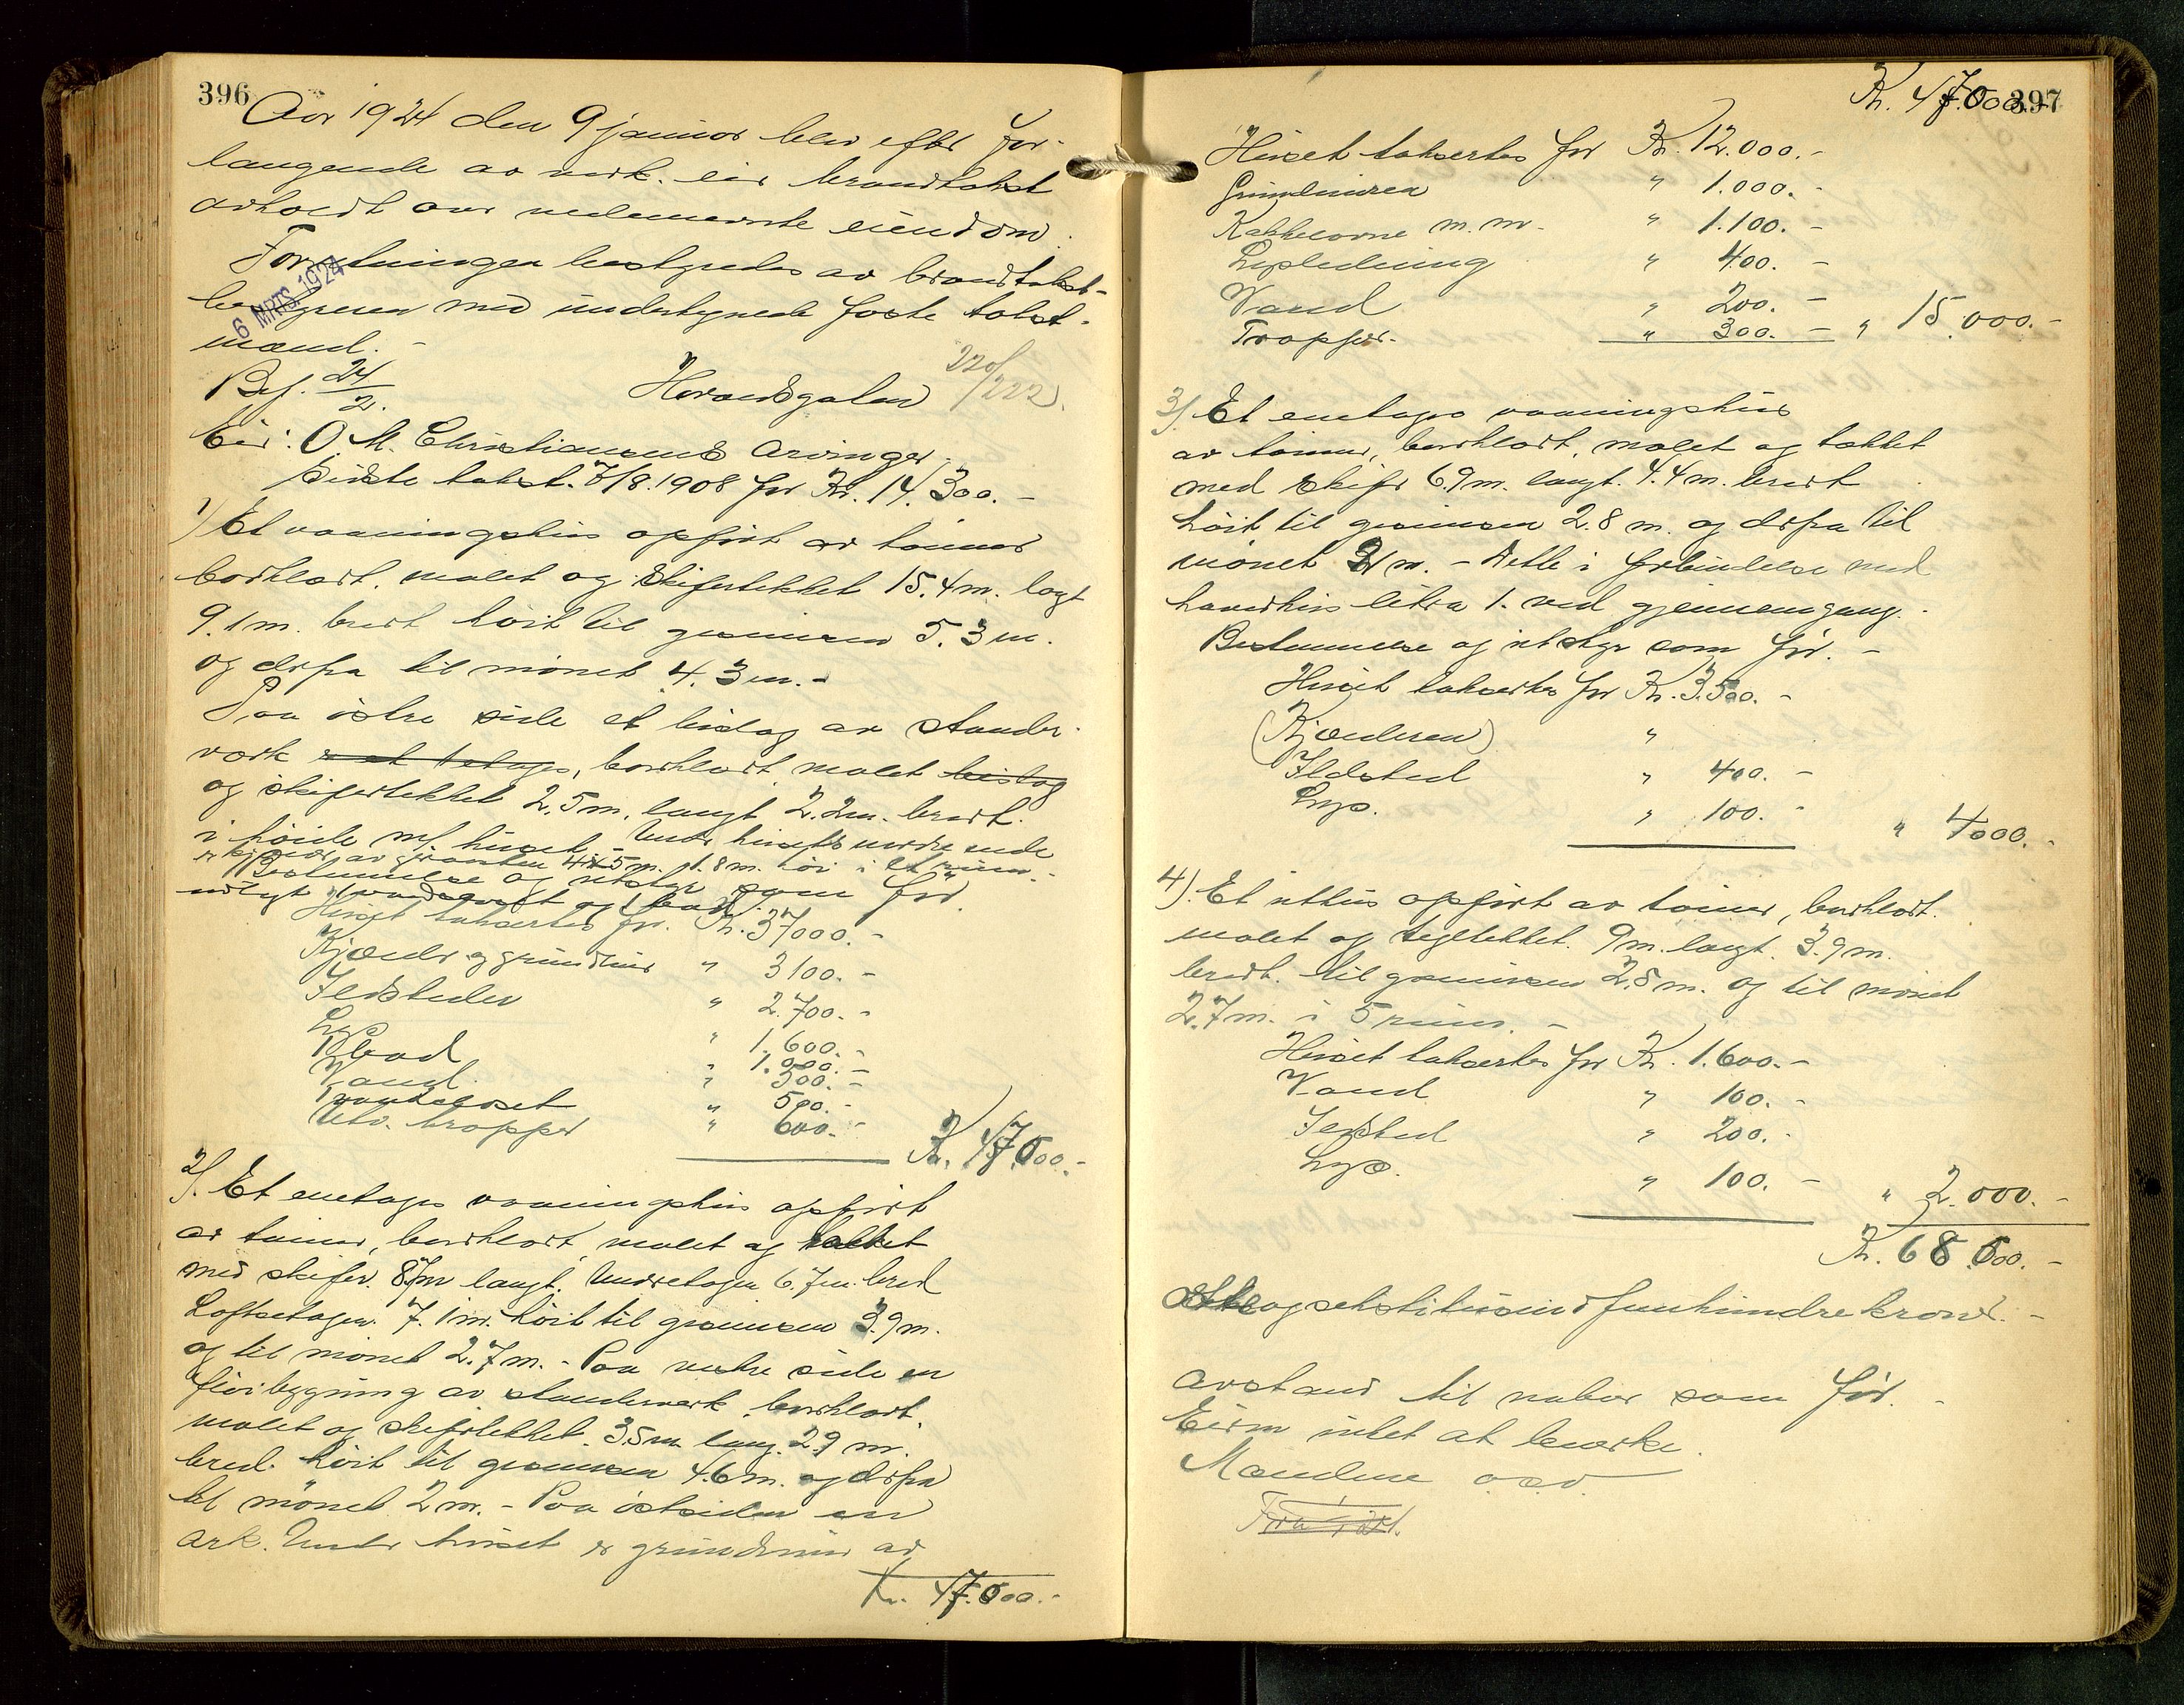 396
Aar 1924 den 9 januar blev efter for-
langende av vedk. eier brandtakst
avholdt over nedennævnte eiendom.
Forretningen bestyredes av brandtakst-
bestyreren med undertegnede faste takst-
mænd. -
6 MRTS. 1924
Bef. 24/2.
220/222.
Eier: O. M. Christiansens arvinger.
Sidste takst. 7/8. 1908 for Kr. 14.300. -
1) Et vaaningshus opført av tømmer
bordklædt, malet og skifertækket 15.4 m. lagt
9.1 m. bredt høit til gesimsen 5.3 m.
og derfra til mønet 4.3 m. -
Paa østre side et bislag av stender-
værk er et 1 etages, bordklædt, malet bislag
og skifertækket 2.5 m. langt 2.2 m. bredt.
i høide m/ huset. - Under husets nordre ende
er kjelder av graasten 4x5 m. 1.8 m. høi i et rum. -
Bestemmelse og utstyr som før.
indlagt 1 vandclosett og 1 bad.
Huset takseres for Kr. 37000. -
Kjelder og grundmur " 3100. -
Ildsteder " 2.700. -
Lys " 1.600. -
Bad " 1.000. -
Vand " 500. -
Vandcloset " 500. -
Utv. trapper " 600. -
Kr. 47.000. -
2). Et enetages vaaningshus opført
av tømmer, bordklædt, malet og tækket
med skifer. 8.7 m langt. Underetagen 6.7 m. bred
Loftsetagen 7.1 m. høit til gesimsen 3.9 m.
og til mønet 2.7 m. - Paa vestre side en
fløibygning av stenderverk, bordklædt,
malet og skifertækket. 3.5 m lang. 2.9 m.
bred. høit til gesimsen 4.6 m. og derfra
til mønet 2 m. - Paa østsiden en
ark. Under huset er grundmur av
Kr. 47.000. -
397
Kr. 47.000. -
Huset takseres for Kr. 12.000. -
Grundmuren " 1.000. -
Kakkelovne m. m. " 1.100. -
Lysledning " 400. -
Vand " 200. -
Trapper. " 300. - " 15.000. -
3). Et enetages vaaningshus
av tømmer, bordklædt, malet og tækket
med skifer 6.9 m. langt. 4.4 m. bredt
høit til gesimsen 2.8 m. og derfra til
mønet 2.1 m. - Dette i forbindelse med
hovedhus litra 1. ved gjennemgang. -
Bestemmelse og utstyr som før. -
Huset takseres for Kr. 3.500. -
(Kjælderen) "
Ildsted " 400. -
Lys. " 100. - " 4000. -
4). Et uthus opført av tømmer, bordklædt.
malet og tegltækket. 9 m. langt. 3.9 m.
bredt. til gesimsen 2.8 m. og til mønet
2.7 m. i 5 rum. -
Huset takseres for Kr. 1.600. -
Vand " 100. -
Ildsted " 200. -
Lys. " 100. - " 2.000. -
Kr. 68.000. -
Otteogsekstitusindfemhundrekroner. -
Avstand til naboer som før. -
Eieren intet at bemerke.
Mændene o.s.v.